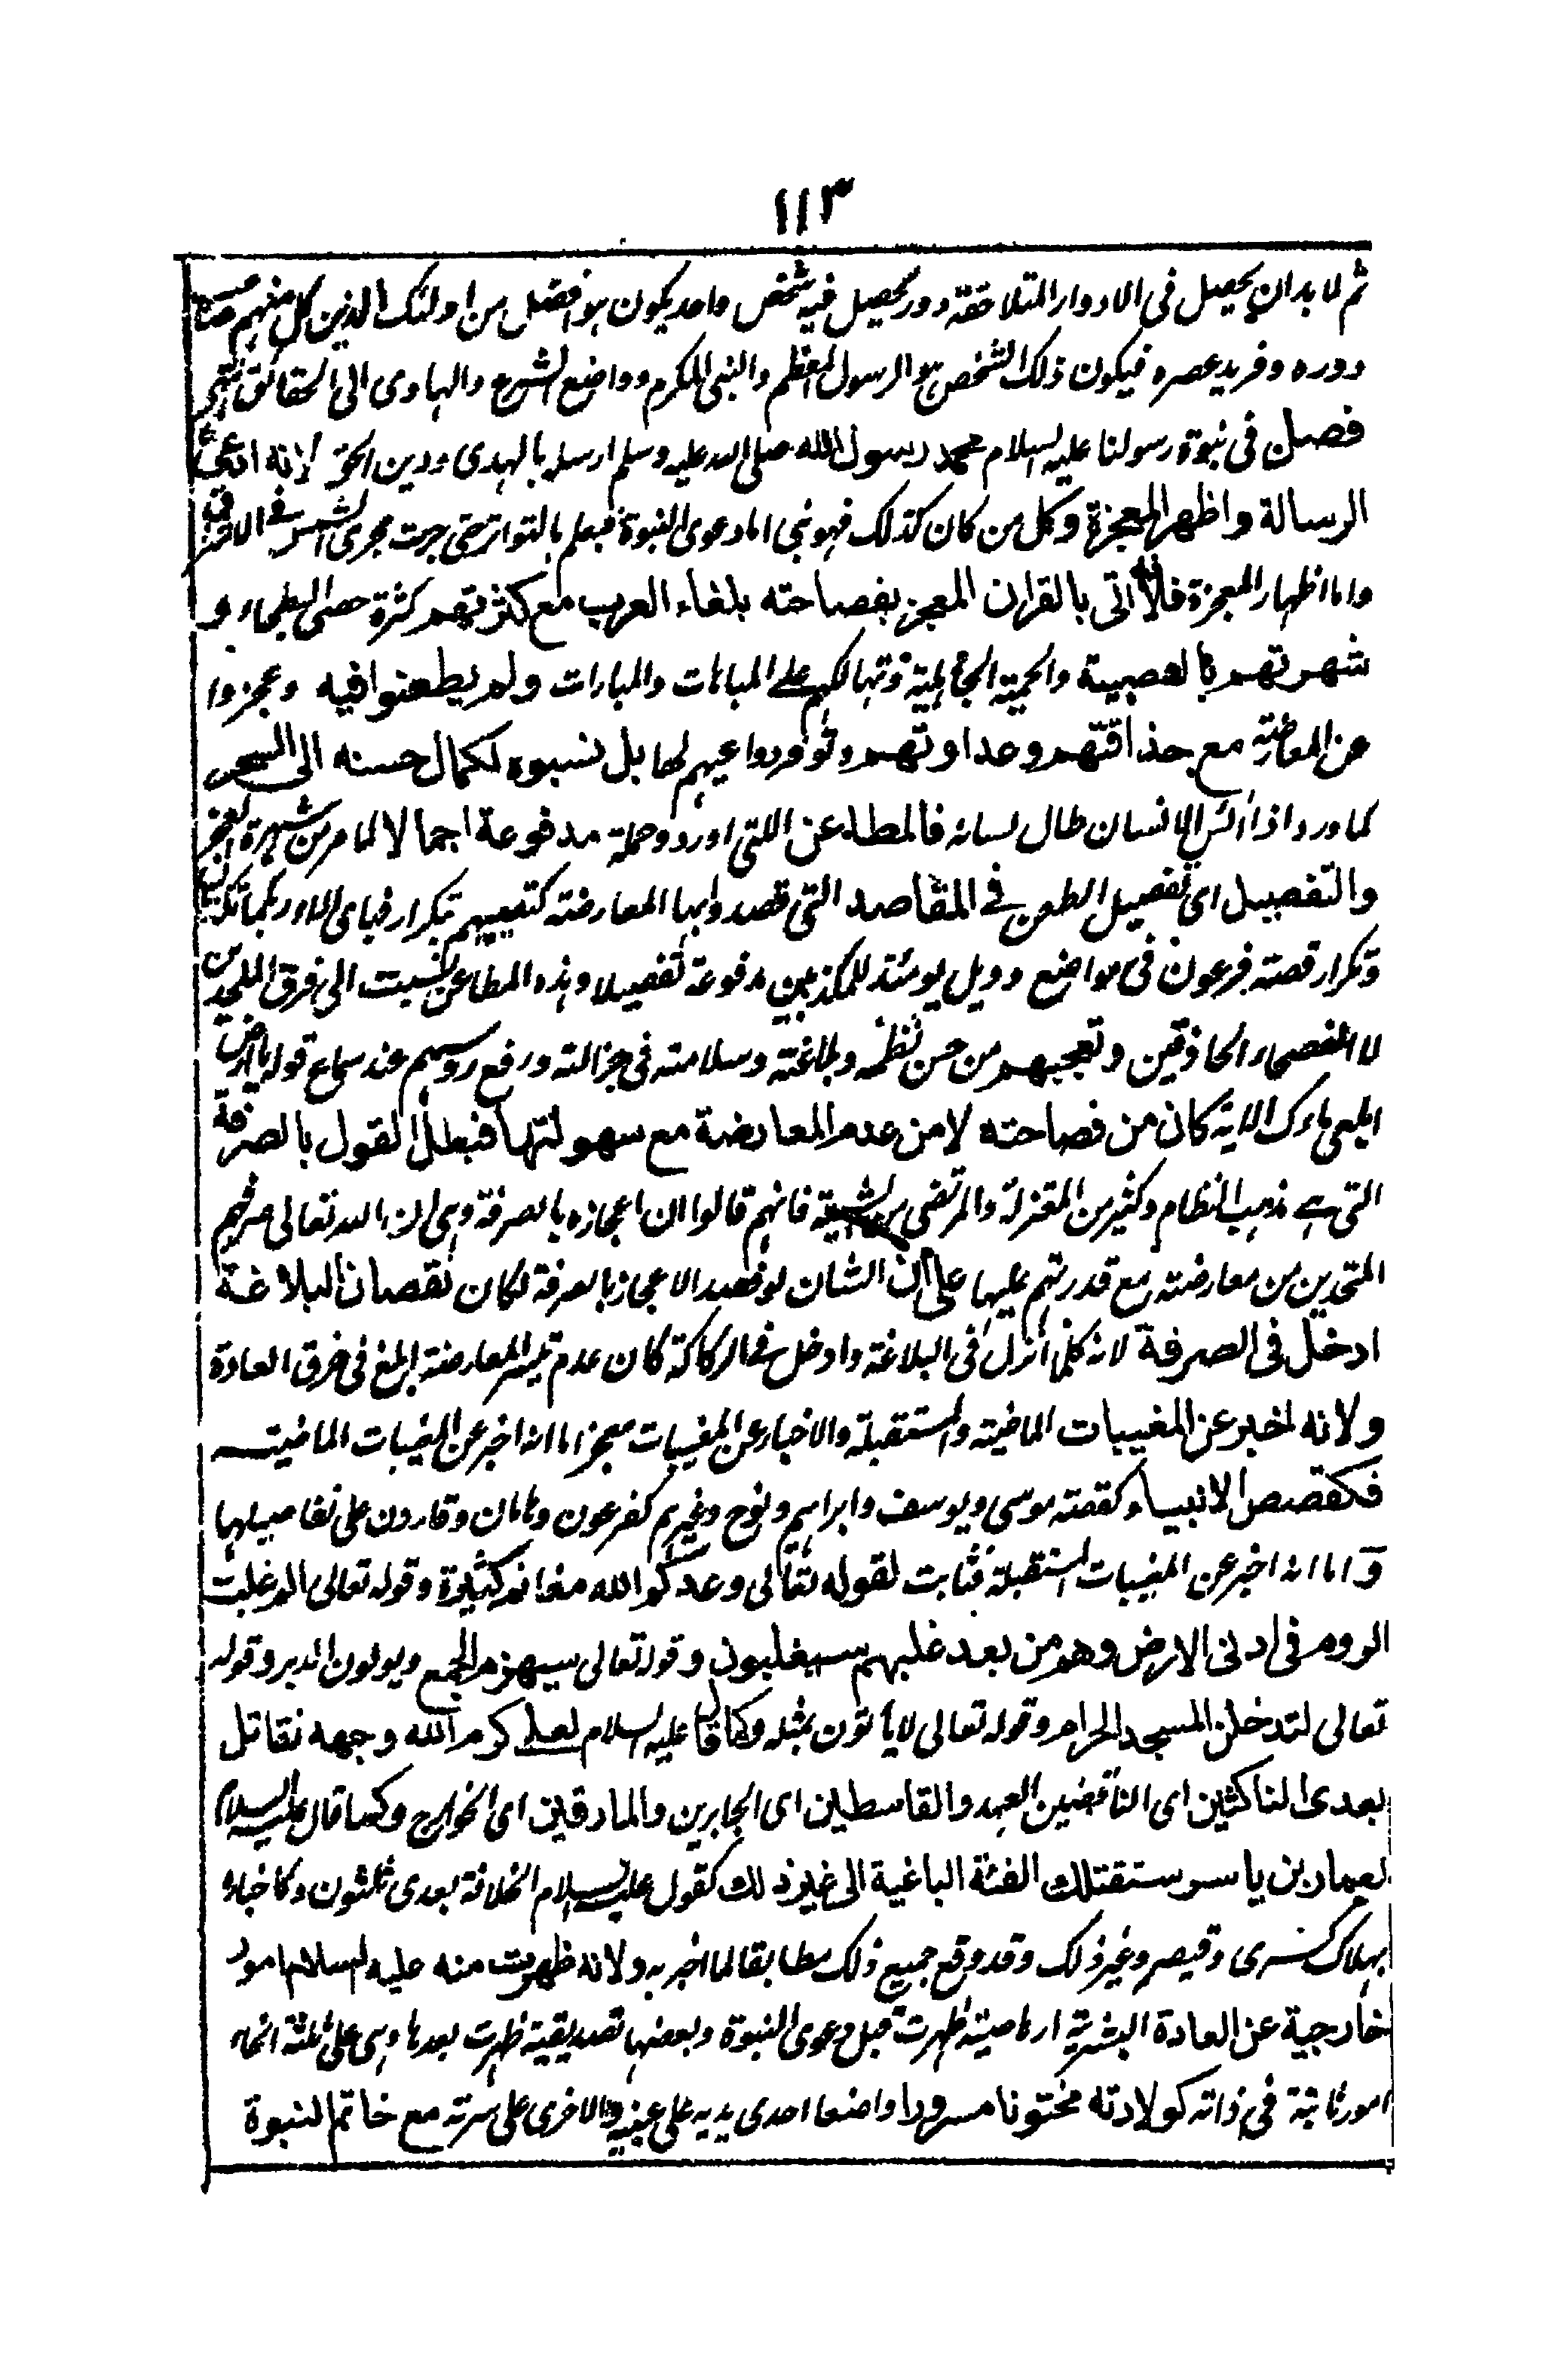 ١١٣
ثم لا بد ان يحصل فى الادوار المتلاحقة دور يحصل فيه شخص واحد يكون هو افضل من اولئك الذين كل منهم صاحب
دوره وفريد عصره فيكون ذلك الشخص هو الرسول المعظم والنبى المكرم وواضع الشرع والهادى الى الحقائق انتهى
فصل فى نبوة رسولنا عليه السلام محمد رسول الله صلى الله عليه وسلم ارسله بالهدى ودين الحق لانه ادعى
الرسالة واظهر المعجزة وكل من كان كذلك فهو نبى اما دعوى النبوة فبعلم بالتواتر حتى جرت مجرى الشمس فى
واما اظهار المعجزة فلانه اتى بالقران المعجز بفصاحته بلغاء العرب مع كثرتهم كثرة حصى البطحاء و
شهرتهم بالعصبية والحمية الجاهلية وتهالكهم على المباهات والمبارات ولم يطعنوا فيه وعجزوا
عن المعارضة مع حذاقتهم وعداوتهم وتوفر دواعيهم لها بل نسبوه لكمال حسنه الى السحر
كما ورد اذا ائس الانسان طال لسانه فالمطاعن اللتى اورد وحملة مدفوعة اجمالا لما مر من شهرة العجز
والتفصيل اى تفصيل الطعن فى المقاصد التى قصدوا بها المعارضة كتعييبهم بتكرار فباى الاء ربكما تكذبان
وتكرار قصة فرعون فى مواضع وويل يومئذ للمكذبين مدفوعة تفصيلا وهذه المطاعن نسبت الى فرق الملحدين
لا الفصحاء الحاذقين وتعجبهم من حسن نظمه وبلاغته وسلامته فى جزالته ورفع روسهم عند سماع قوله يا ارض
ابلعى ماءك الاية كان من فصاحته لا من عدم المعارضة مع سهولتها فبطل القول بالصرفة
التى هے مذهب النظام وكثير من المعتزلة والمرتضى من الشيعة فانهم قالوا ان اعجازه بالصرفة وهى ان الله تعالى صرفهم
المتحدين من معارضته مع قدرتهم عليها على ان الشان لو قصد الاعجاز بالصرفة لكان نقصان البلاغة
ادخل فى الصرفة لانه كلما انزل فى البلاغة وادخل فى الركاكة كان عدم تيسر المعارضة ابلغ فى خرق العادة
ولانه اخبر عن المغيبات الماضية والمستقبلة والاخبار عن المغيبات معجز اما انه اخبر عن المغيبات الماضية
فكقصص الانبياء كقصة موسى ويوسف وابراهيم ونوح وغيرهم كفرعون وهامان وقارون على تفاصيلها
و اما انه اخبر عن المغيبات المستقبلة فثابت لقوله تعالى وعدكم الله مغانم كثيرة وقوله تعالى الم غلبت
الروم فى ادنى الارض وهم من بعد غلبهم سيغلبون وقوله تعالى سيهزم الجمع ويولون الدبر وقوله
تعالى لتدخلن المسجد الحرام وقوله تعالى لا يأتون بمثله وكما قال عليه السلام لعلى كرم الله وجهه تقاتل
بعدى الناكثين اى الناقضين العهد والقاسطين اى الجابرين والمارقين اى الخوارج وكما قال عليه السلام
لعمار بن ياسر ستقتلك الفئة الباغية الى غير ذلك كقول عليه السلام الخلافة بعدى ثلثون وكاخباره
بهلاك كسرى وقيصر وغير ذلك وقد وقع جميع ذلك مطابقا لما اخبر به ولانه ظهرت منه عليه السلام امور
خارجية عن العادة البشرية ارهاصية ظهرت قبل دعوى النبوة وبعضها تصديقية ظهرت بعدها وهى على ثلثة انحاء
امور ثابتة فى ذاته كولادته مختونا مسرورا واضعا احدى يديه على عينيه والاخرى على سرته مع خاتم النبوة